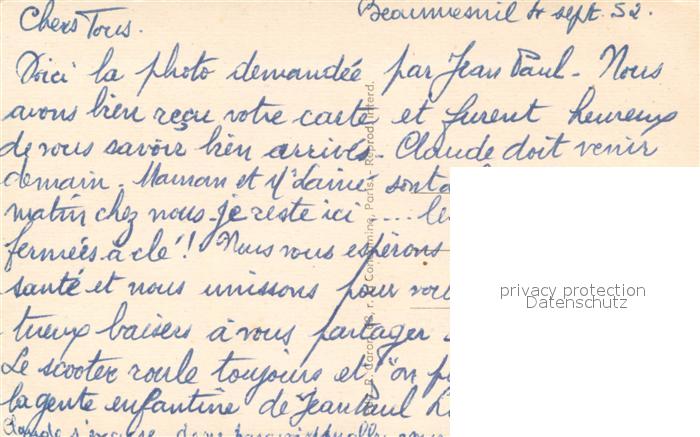 Beaumesnil 4 sept. 52.
Chers Tous.
Voici la photo demandée par Jean Paul - Nous
avons bien reçu votre carte et furent heureux
de vous savoir bien arrivés. Claude doit venir
demain. Maman et
matin chez nous. je reste ici .... le
fermées à clé!! Nous vous espérons
santé et nous unissons pour vou
tueux baisers à vous partager
Le scooter roule toujours et "on
la gente enfantine de Jean Paul
privacy protection
Datenschutz
Paris - Reprod. Interd.